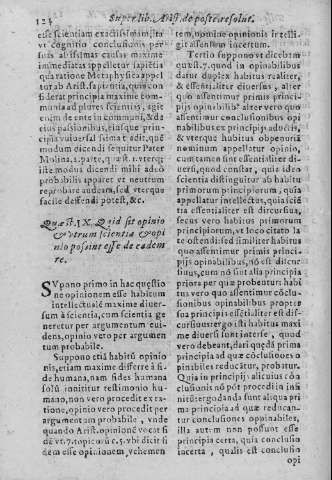 124 Super lib. Arist. de poster. resolut.
esse scientiam exactissimam, ita
vt cognitio conclusionis per
suas altissimas causas maxime
immediatas appelletur sapiẽtia
qua ratione Metaphysica appel
latur ab Arist. sapientia, quia con
siderat principia maxime com-
munia ad plures scientias, agit
enim de ente in communi, & de
eius passionibus, eiusque prin-
cipia vniuersalissima sunt, quẽ
modum dicendi sequitur Pater
Molina, 1. parte, quæst. 1. vterq;
iste modus dicendi mihi aduo
probabilis apparet & neutrum
reprobare audeam, sed vterque
facile deffendi potest, &c.
Quæst. IX. Quid sit opinio
& vtrum scientia & opi
nio possint esse de eadem
re.
SVpono primo in hac quęstio
ne opinionem esse habitum
intellectualẽ maxime diuer-
sum à scientia, cum scientia ge
neretur per argumentum eui-
dens, opinio vero per argumen
tum probabile.
Suppono etiã habitũ opinio
nis, etiam maxime differre à fi-
de humana, nam fides humana
solũ innititur testimonio hu-
mano, non vero procedit ex ra-
tione, opinio vero procedit per
argumentum probabile, vnde
quando Arist. opinionẽ vocat fi
dẽ vt. 7. topicorũ c. 5. vbi dicit fi
dem esse opinionem vehemen
tem, nomine opinionis intelli-
git assensum incertum.
Tertio suppono vt dicebam
quęst. 7. quod in opinabilibus
datur duplex habitus realiter,
& essentialiter diuersus, alter
quo assentimur primis princi-
pijs opinabilibus alter vero quo
assentimur conclusionibus opi
nabilibus ex principijs aductis,
& vterque habitus obuenit à
nominum appellatur opinio,
cum tamen sint essentialiter di-
uersi, quod constat, quia ideo
scientia distinguitur ab habitu
primorum principiorum, quia
appellatur intellectus, quia sciẽ
tia essentialiter est discursiua,
secus vero habitus primorum
principiorum, vt loco citato la
te ostendi sed similiter habitus
quo assentimur primis princi-
pijs opinabilibus, nõ est discur
siuus, cum nõ sint alia principia
priora per quæ probentur: habi
tus vero quo assentimur cõclu-
sionibus opinabilibus propter
sua principia essẽtialiter est dis-
cursiuus ergo isti habitus maxi
me diuersi sunt inter se, quod
vero debeant, dari quędã prima
principia ad quæ cõclusiones o
pinabiles reducãtur, probatur.
Quia in principijs alicuius cõ-
clusionis nõ põt procedi in infi
nitũ: ergo danda sunt aliqua pri
ma principia ad quæ reducan-
tur conclusiones opinabiles,
illa autem non possunt esse
principia certa, quia conclusio
incerta, qualis est conclusio
opi